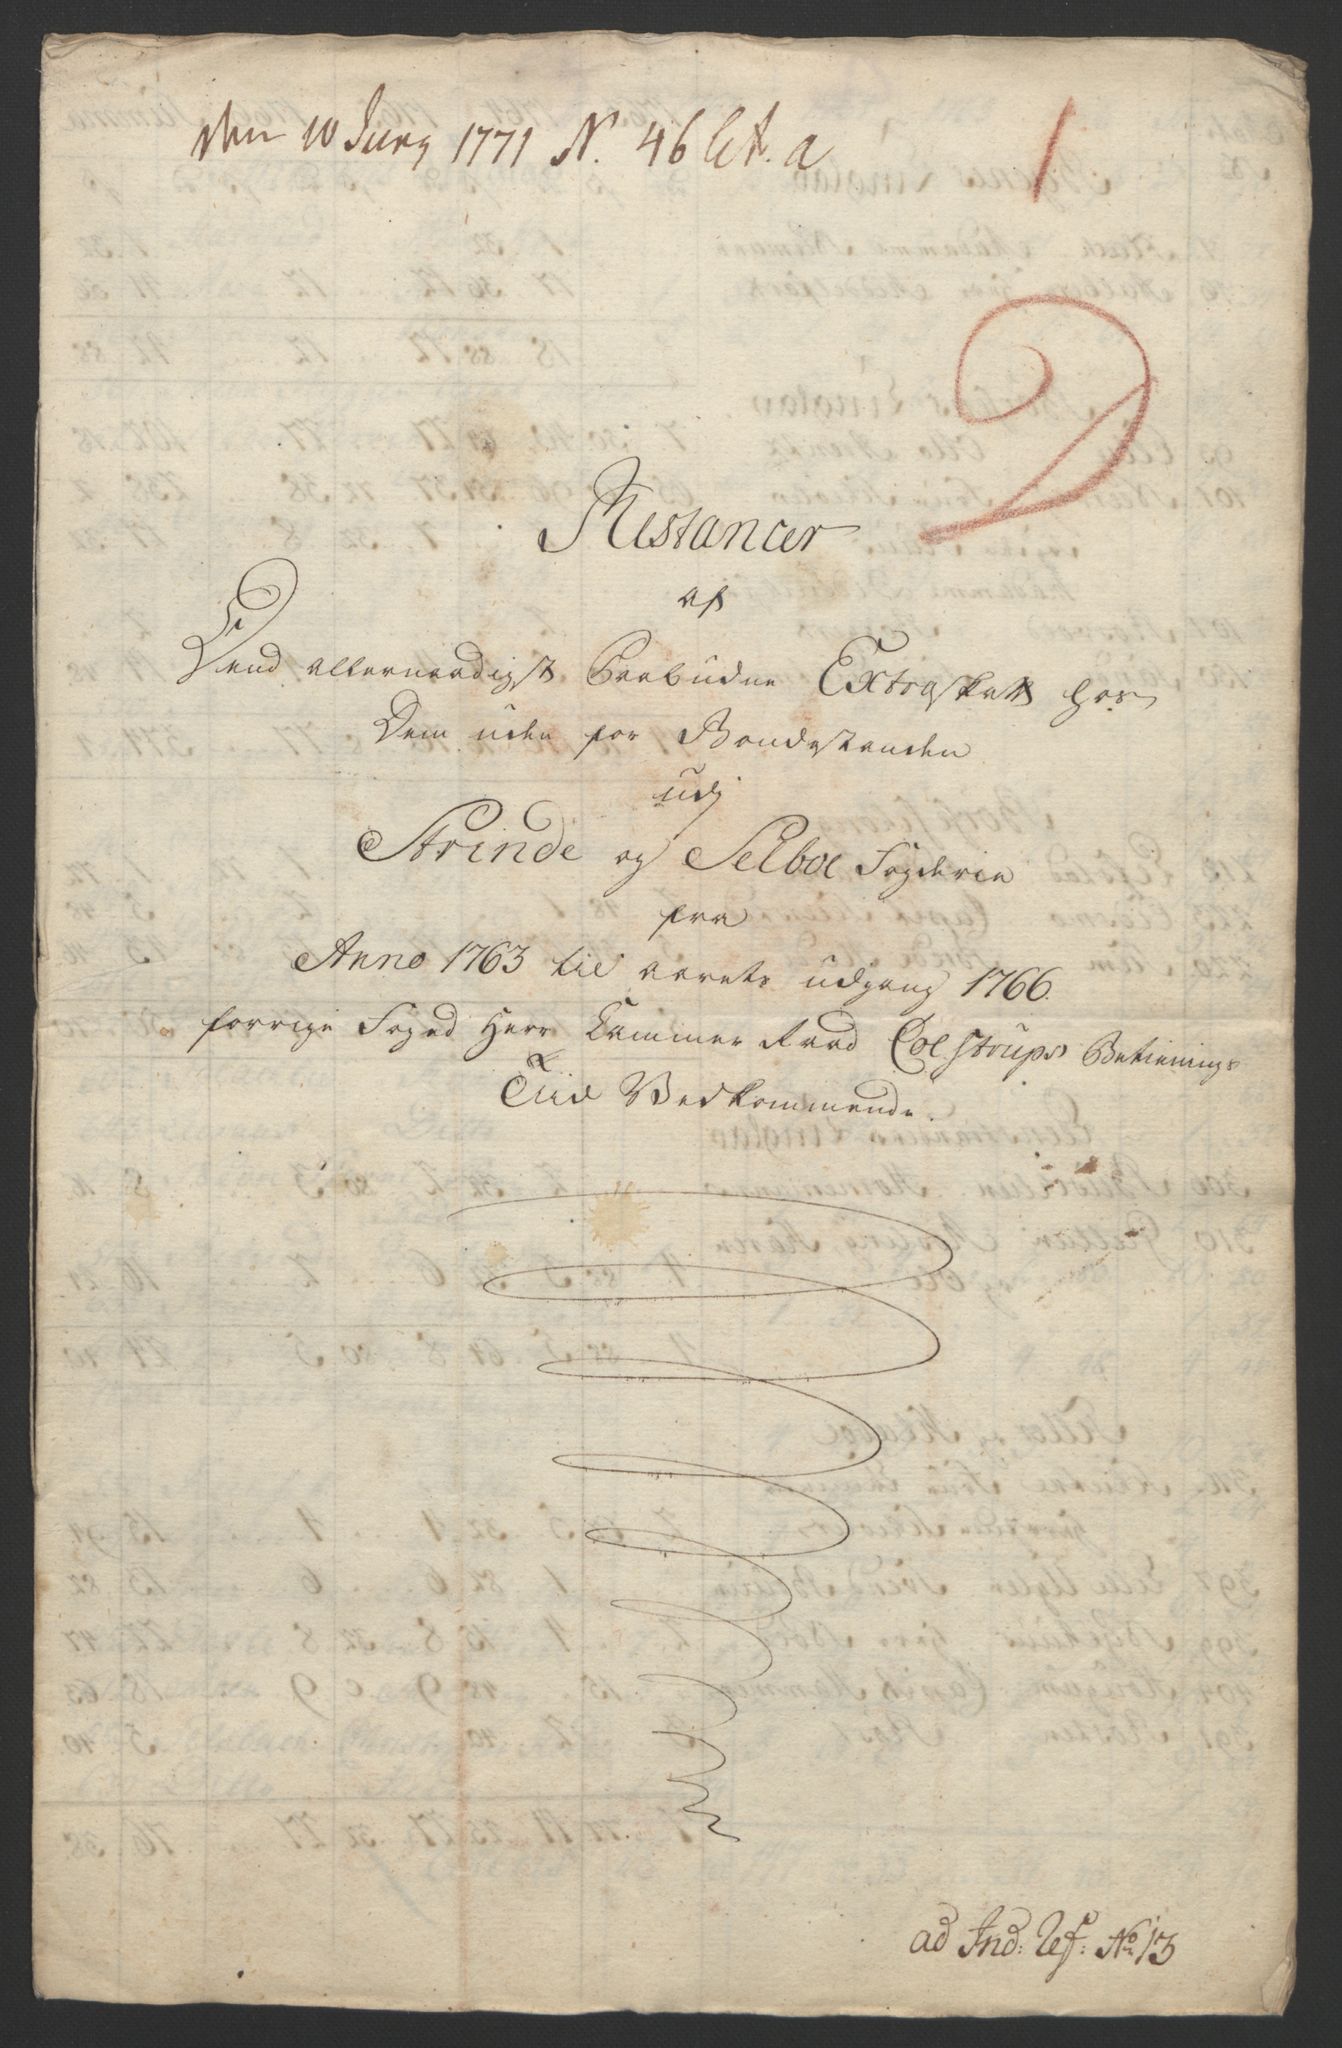 den 10 Juny 1771 N. 46 lit. a
1
Restancer
af
Dend allernaadigst Paabudne Extraskatt hos
Dem uden for Bondestanden
udj
Strinde og Selboe Fogderie
fra
Anno 1763 til aarets udgang 1766.
forrige Foged Herr Kammer Raad Colstrups Betienings
Tiid Vedkommende.
ad Ind: No 13